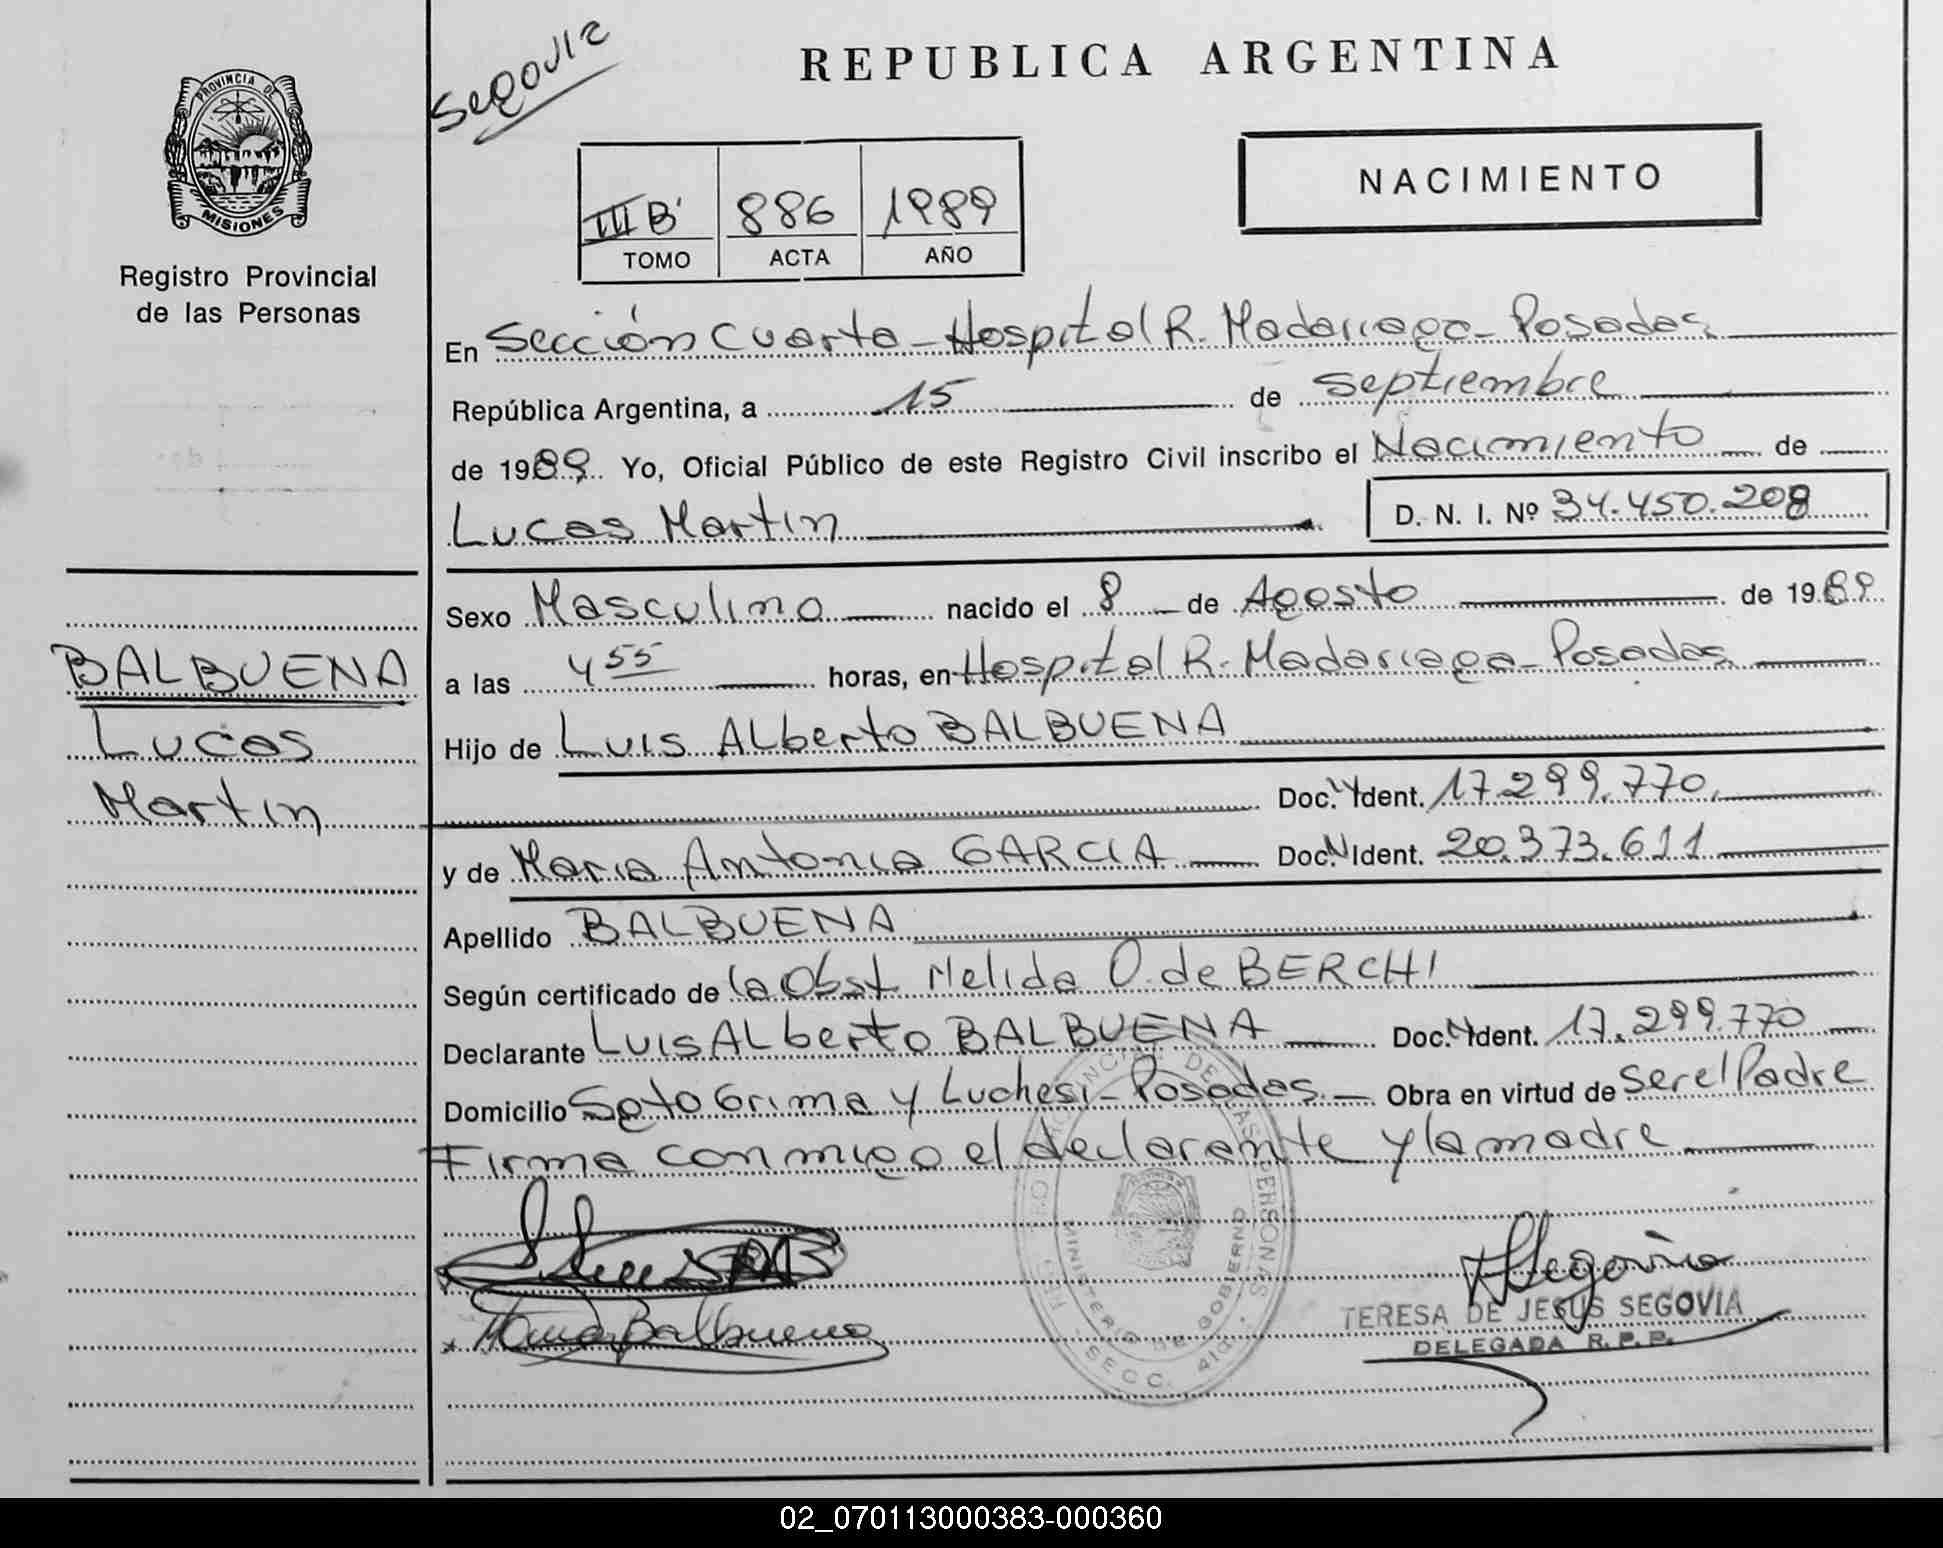 Segovia
REPUBLICA ARGENTINA
PROVINCIA DE
MISIONES
Registro Provincial
de las Personas
III B' 886 1989
TOMO ACTA AÑO
NACIMIENTO
En Sección Cuarta - Hospital R. Madariaga - Posadas
República Argentina, a 15 de Septiembre
de 1989 Yo, Oficial Público de este Registro Civil inscribo el Nacimiento de
Lucas Martin
D. N. I. Nº 34.450.208
BALBUENA
Lucas
Martin
Sexo Masculino nacido el 8 de Agosto de 1989
a las 4 55 horas, en Hospital R. Madariaga - Posadas
Hijo de Luis Alberto BALBUENA
Doc. N Ident. 17.299.770
y de Maria Antonia GARCIA Doc. N Ident. 20.373.611
Apellido BALBUENA
Según certificado de la Obst. Nelida O. de BERCHI
Declarante Luis Alberto BALBUENA Doc. N Ident. 17.299.770
Domicilio Sgto Grima y Luchesi - Posadas. Obra en virtud de ser el Padre
Firma conmigo el declarante y la madre
Balbuena
Segovia
TERESA DE JESUS SEGOVIA
DELEGADA R.P.P.
REGISTRO PROVINCIAL DE LAS PERSONAS
MINISTERIO DE GOBIERNO
SECC. 4ta.
02_070113000383-000360